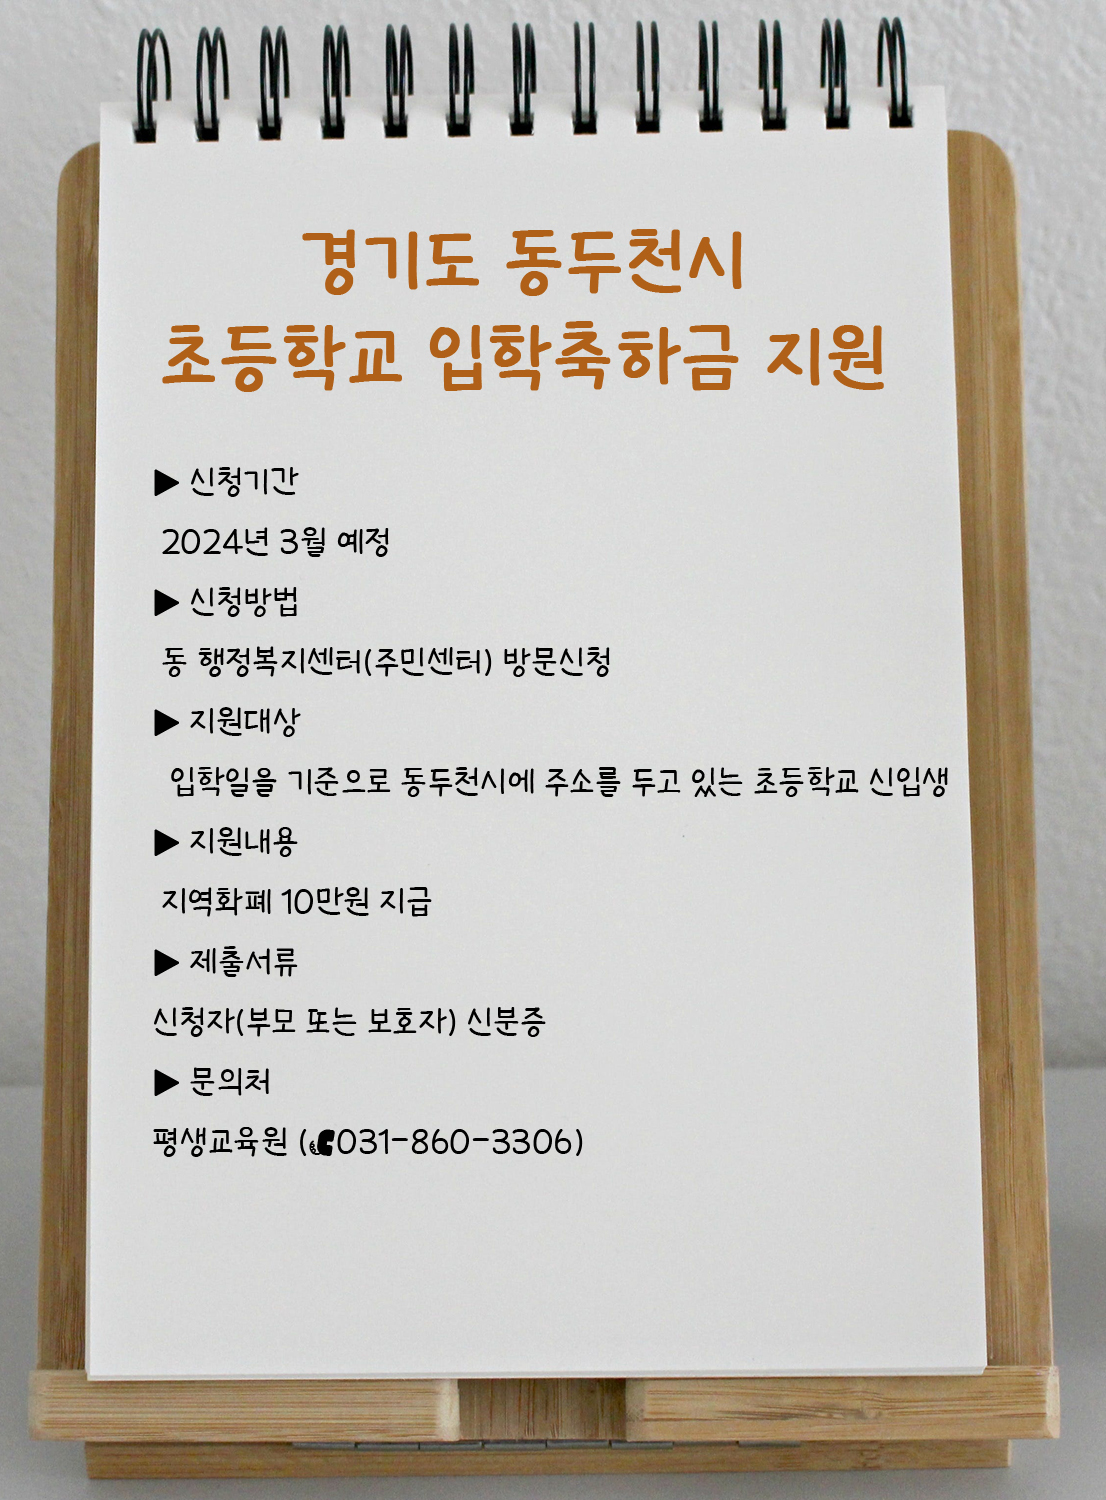 경기도 동두천시
초등학교 입학축하금 지원
▶ 신청기간
2024년 3월 예정
▶ 신청방법
동 행정복지센터(주민센터) 방문신청
▶ 지원대상
입학일을 기준으로 동두천시에 주소를 두고 있는 초등학교 신입생
▶ 지원내용
지역화폐 10만원 지급
▶ 제출서류
신청자(부모 또는 보호자) 신분증
▶ 문의처
평생교육원 (☎031-860-3306)